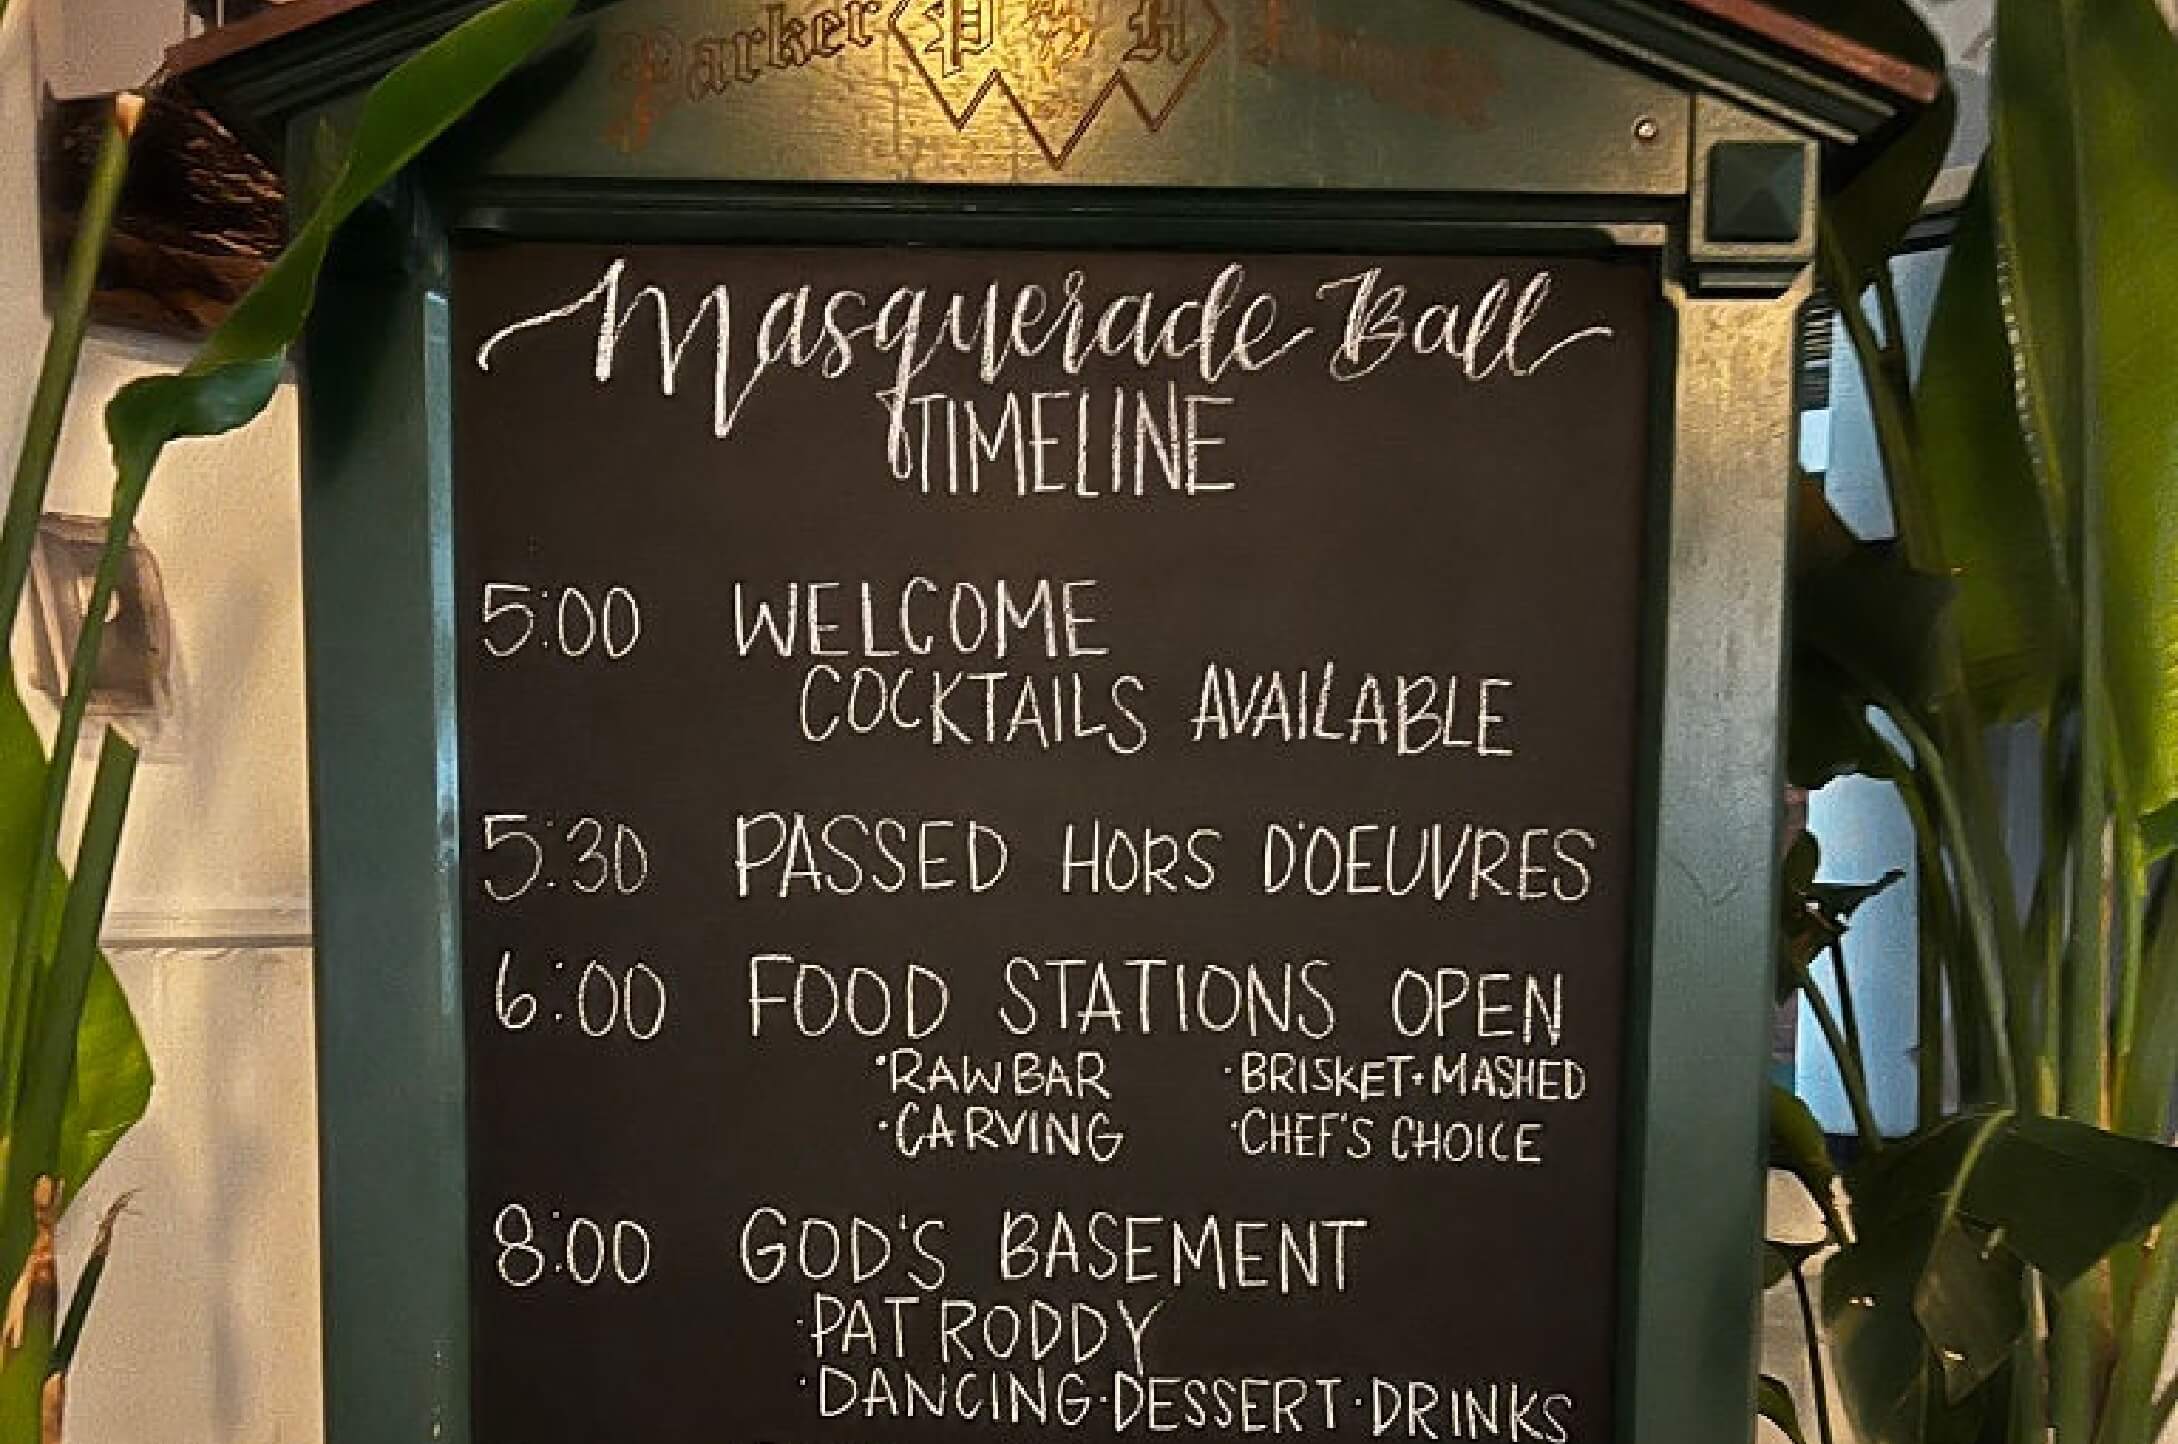 Parker P H House
Masquerade Ball
TIMELINE
5:00 WELCOME
COCKTAILS AVAILABLE
5:30 PASSED HORS D'OEUVRES
6:00 FOOD STATIONS OPEN
·RAW BAR ·BRISKET·MASHED
·CARVING ·CHEF'S CHOICE
8:00 GOD'S BASEMENT
·PAT RODDY
·DANCING·DESSERT·DRINKS